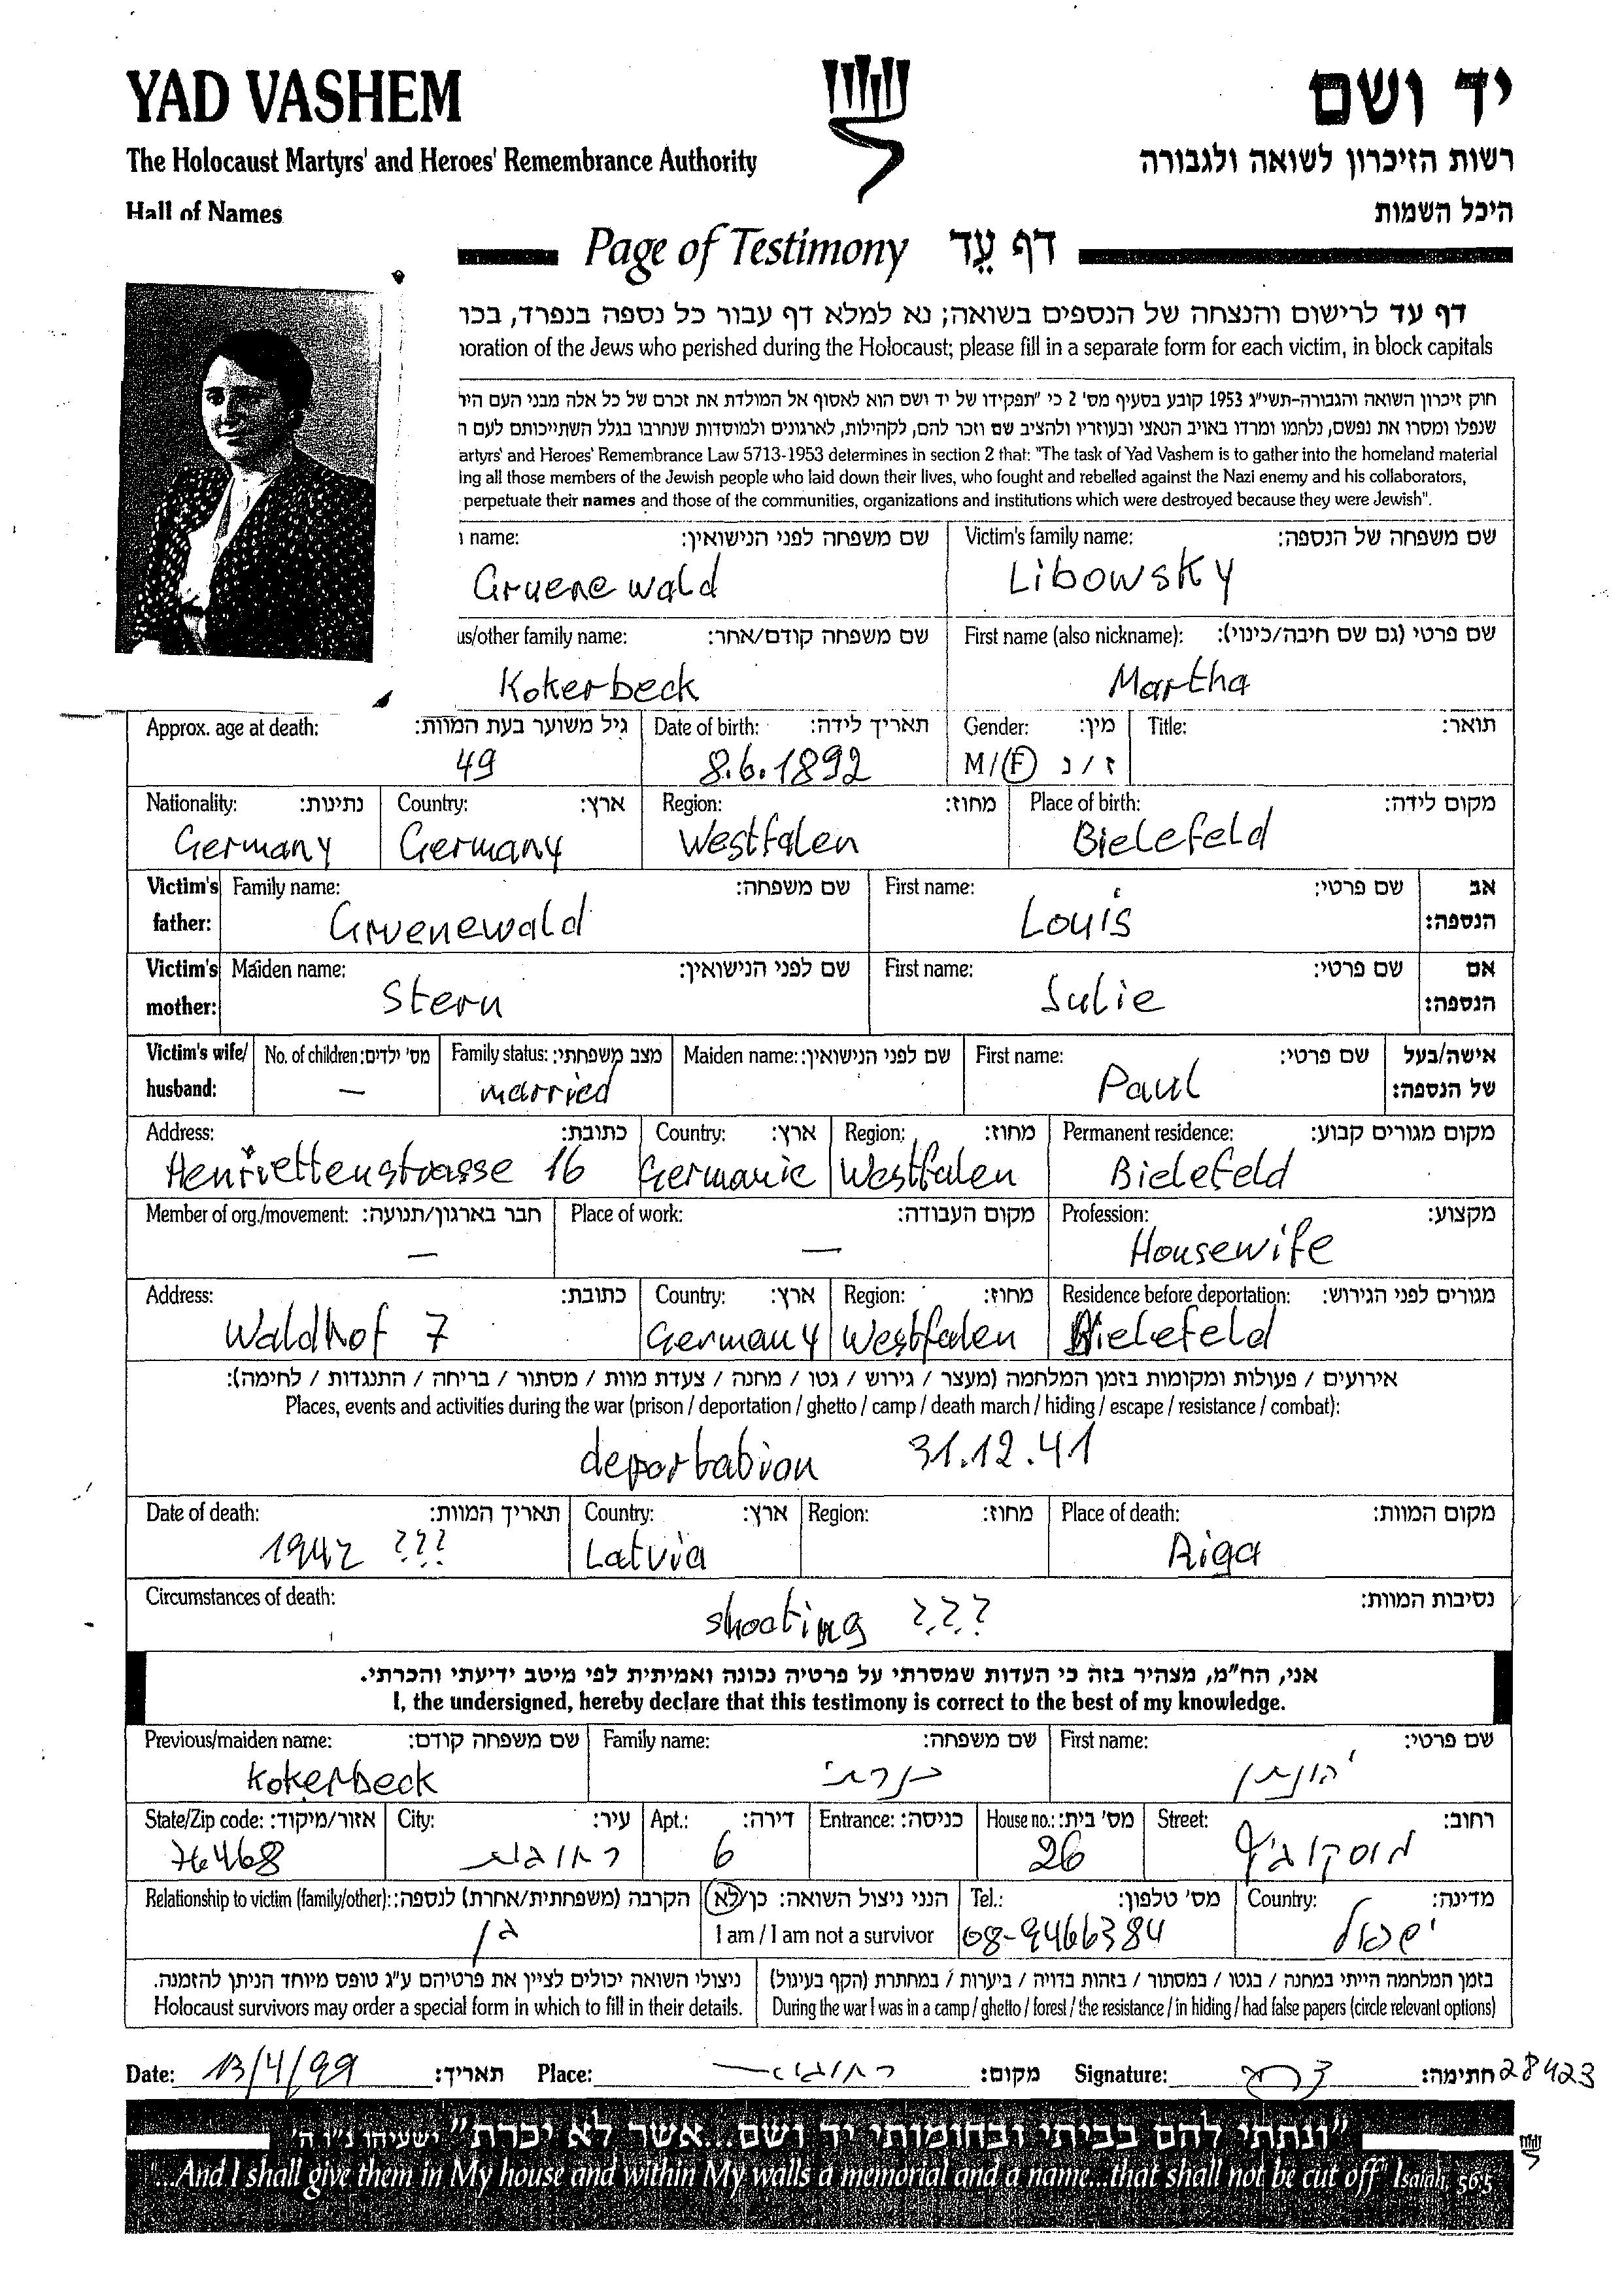 YAD VASHEM
יד ושם
The Holocaust Martyrs' and Heroes' Remembrance Authority
רשות הזיכרון לשואה ולגבורה
Hall of Names
היכל השמות
Page of Testimony דף עֵד
דף עד לרישום והנצחה של הנספים בשואה; נא למלא דף עבור כל נספה בנפרד, בכו
noration of the Jews who perished during the Holocaust; please fill in a separate form for each victim, in block capitals
חוק זיכרון השואה והגבורה-תשי"ג 1953 קובע בסעיף מס' 2 כי "תפקידו של יד ושם הוא לאסוף אל המולדת את זכרם של כל אלה מבני העם היה
שנפלו ומסרו את נפשם, נלחמו ומרדו באויב הנאצי ובעוזריו ולהציב שם וזכר להם, לקהילות, לארגונים ולמוסדות שנחרבו בגלל השתייכותם לעם ה
artyrs' and Heroes' Remembrance Law 5713-1953 determines in section 2 that: "The task of Yad Vashem is to gather into the homeland material
ing all those members of the Jewish people who laid down their lives, who fought and rebelled against the Nazi enemy and his collaborators,
perpetuate their names and those of the communities, organizations and institutions which were destroyed because they were Jewish".
name: שם משפחה לפני הנישואין: Victim's family name: שם משפחה של הנספה:
Gruenewald Libowsky
us/other family name: שם משפחה קודם/אחר: First name (also nickname): שם פרטי (גם שם חיבה/כינוי):
Kokerbeck Martha
Approx. age at death: גיל משוער בעת המוות: Date of birth: תאריך לידה: Gender: מין: Title: תואר:
49 8.6.1892 M/F ז/נ
Nationality: נתינות: Country: ארץ: Region: מחוז: Place of birth: מקום לידה:
Germany Germany Westfalen Bielefeld
Victim's father: Family name: שם משפחה: First name: שם פרטי: אב הנספה:
Gruenewald Louis
Victim's mother: Maiden name: שם לפני הנישואין: First name: שם פרטי: אם הנספה:
Stern Julie
Victim's wife/ husband: No. of children: מס' ילדים: Family status: מצב משפחתי: Maiden name: שם לפני הנישואין: First name: שם פרטי: אישה/בעל של הנספה:
— married Paul
Address: כתובת: Country: ארץ: Region: מחוז: Permanent residence: מקום מגורים קבוע:
Henriettenstrasse 16 Germanie Westfalen Bielefeld
Member of org./movement: חבר בארגון/תנועה: Place of work: מקום העבודה: Profession: מקצוע:
— — Housewife
Address: כתובת: Country: ארץ: Region: מחוז: Residence before deportation: מגורים לפני הגירוש:
Waldhof 7 Germany Westfalen Bielefeld
אירועים / פעולות ומקומות בזמן המלחמה (מעצר / גירוש / גטו / מחנה / צעדת מוות / מסתור / בריחה / התנגדות / לחימה):
Places, events and activities during the war (prison / deportation / ghetto / camp / death march / hiding / escape / resistance / combat):
deportation 31.12.41
Date of death: תאריך המוות: Country: ארץ: Region: מחוז: Place of death: מקום המוות:
1942 ??? Latvia Riga
Circumstances of death: נסיבות המוות:
shooting ???
אני, הח"מ, מצהיר בזה כי העדות שמסרתי על פרטיה נכונה ואמיתית לפי מיטב ידיעתי והכרתי.
I, the undersigned, hereby declare that this testimony is correct to the best of my knowledge.
Previous/maiden name: שם משפחה קודם: Family name: שם משפחה: First name: שם פרטי:
Kokerbeck יהונתן
State/Zip code: אזור/מיקוד: City: עיר: Apt.: דירה: Entrance: כניסה: House no.: מס' בית: Street: רחוב:
76468 רחובות 6 26 מוסקוביץ
Relationship to victim (family/other): הקרבה (משפחתית/אחרת) לנספה: הנני ניצול השואה: כן/לא Tel.: מס' טלפון: Country: מדינה:
בן I am / I am not a survivor 08-9466384 ישראל
ניצולי השואה יכולים לציין את פרטיהם ע"ג טופס מיוחד הניתן להזמנה. בזמן המלחמה הייתי במחנה / בגטו / במסתור / בזהות בדויה / ביערות / במחתרת (הקף בעיגול)
Holocaust survivors may order a special form in which to fill in their details. During the war I was in a camp / ghetto / forest / the resistance / in hiding / had false papers (circle relevant options)
Date: 13/4/99 תאריך: Place: רחובות מקום: Signature: חתימה: 28423
"ונתתי להם בביתי ובחומותי יד ושם...אשר לא יכרת" ישעיהו נ"ו ה'
...And I shall give them in My house and within My walls a memorial and a name...that shall not be cut off Isaiah 56:5